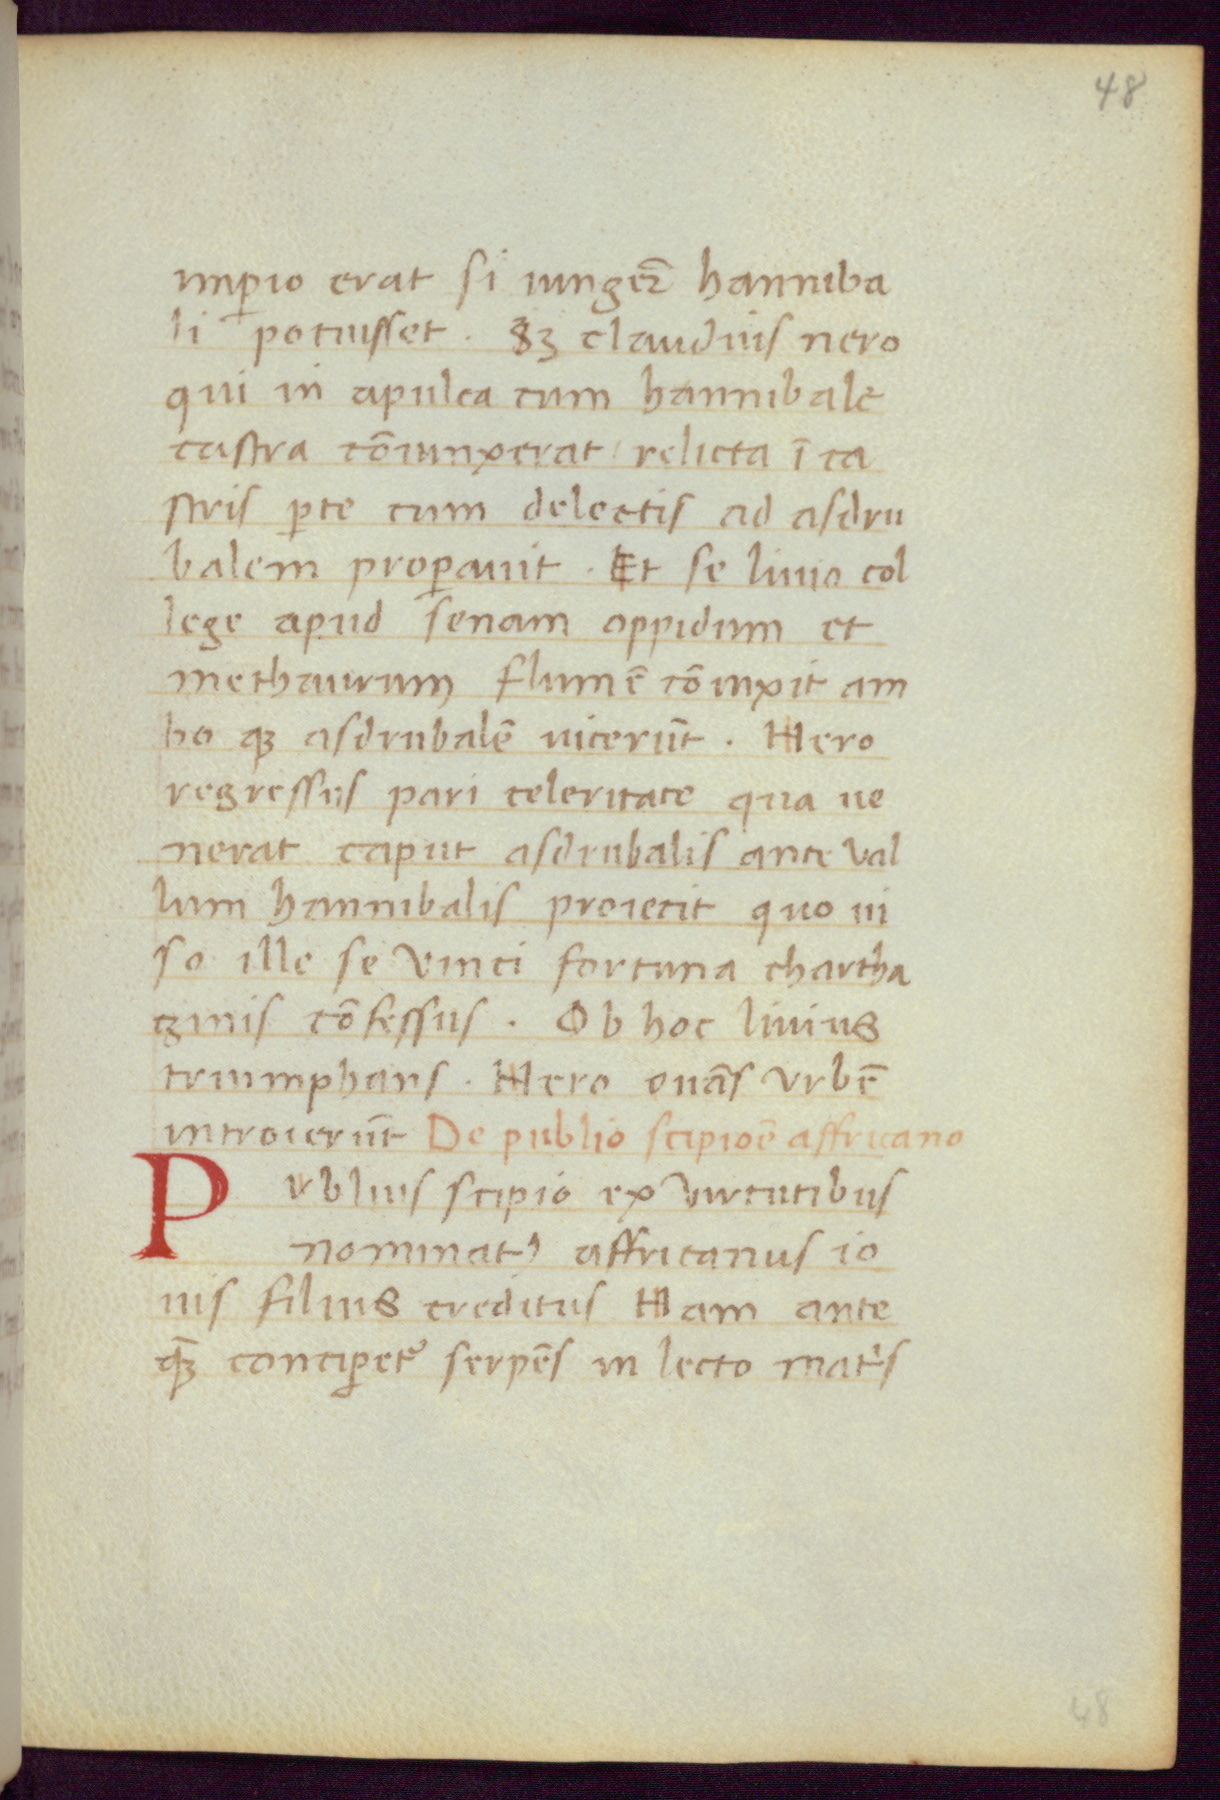 48
imꝑio erat si iungeꝛ̄ hanniba
li potuisset . Sꝫ claudius nero
qui in apulea cum hannibale
castra cōiunxerat relicta ī ca
stris ꝑte cum delectis ad asdru
balem proꝑauit . Et se liuio col
lege apud senam oppidum et
methaurum flumē cōiuxit am
bo qꝫ asdrubalē uicerūt . Nero
regressus pari celeritate qua ue
nerat caput asdrubalis ante val
lum hannibalis proiecit quo ui
so ille se vinci fortuna chartha
ginis cōfessus . Ob hoc liuius
triumphans . Nero ouās vrbē
introierūt De publio scipiōe affricano
Pvblius scipio ex virtutibus
nominatꝰ affricanus io
uis filius creditus Nam ante
qꝫ̄ conciꝑet᷑ serpēs in lecto matͥs
48